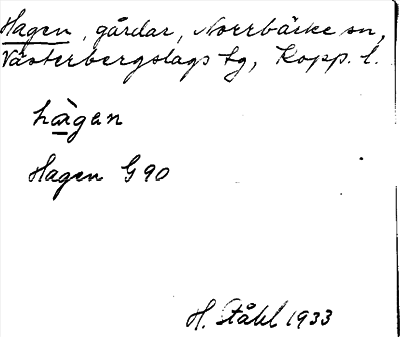 Hagen, gårdar, Norrbärke sn,
Västerbergslags tg, Kopp. l.
hàgan
Hagen G 90
H. Ståhl 1933